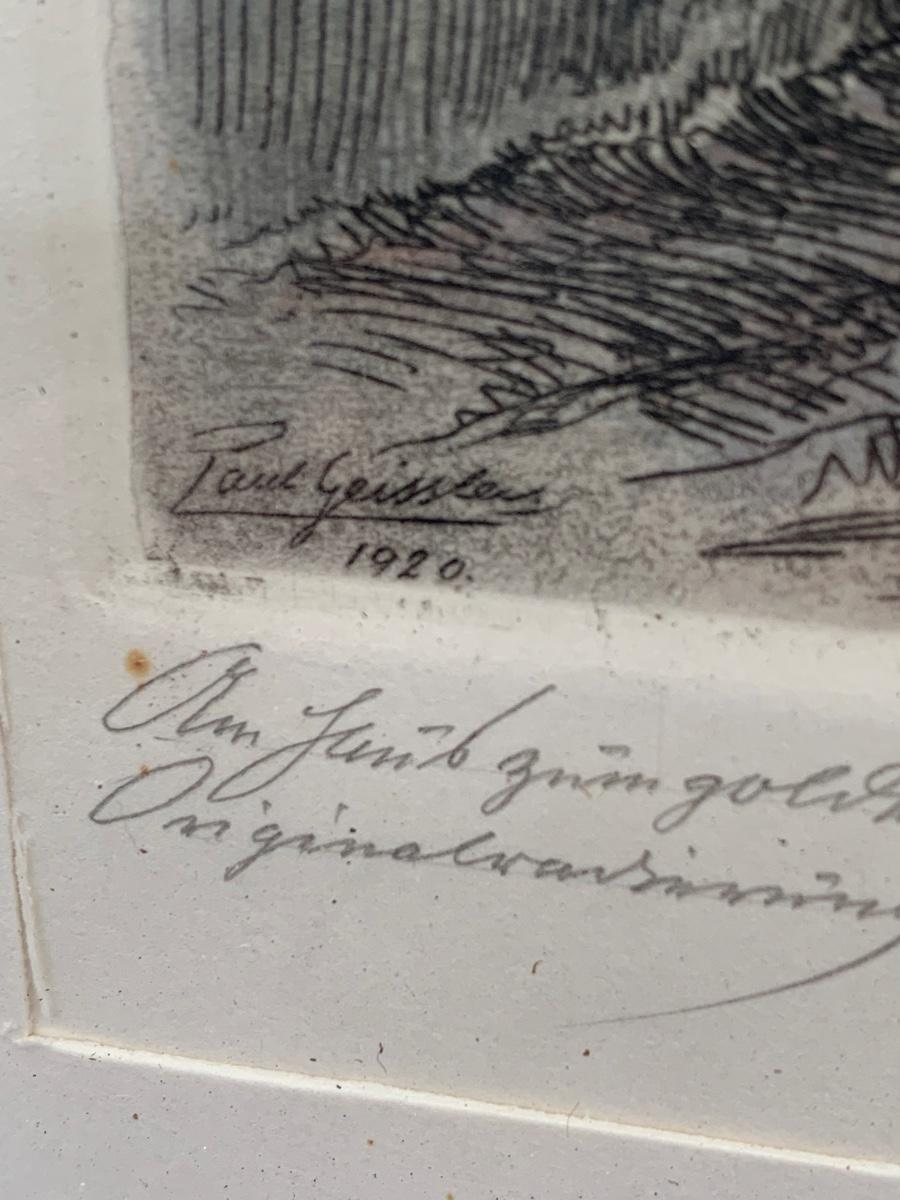 Paul Geissler
1920.
Am Haus zum gold
Originalradierung